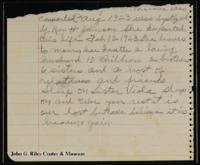 converted Aug. 1923 was baptized
by Rev. H. Johnson She departed
this life Feb 12-1943 She leaves
to mourn her death a loving
husband 10 children 2 brothers
6 sisters and a host of
relatives and friends
Sleep on Sister Viola sleep
on and take your rest it is
our lost but we believe it is
heavens gain
John G. Riley Center & Museum